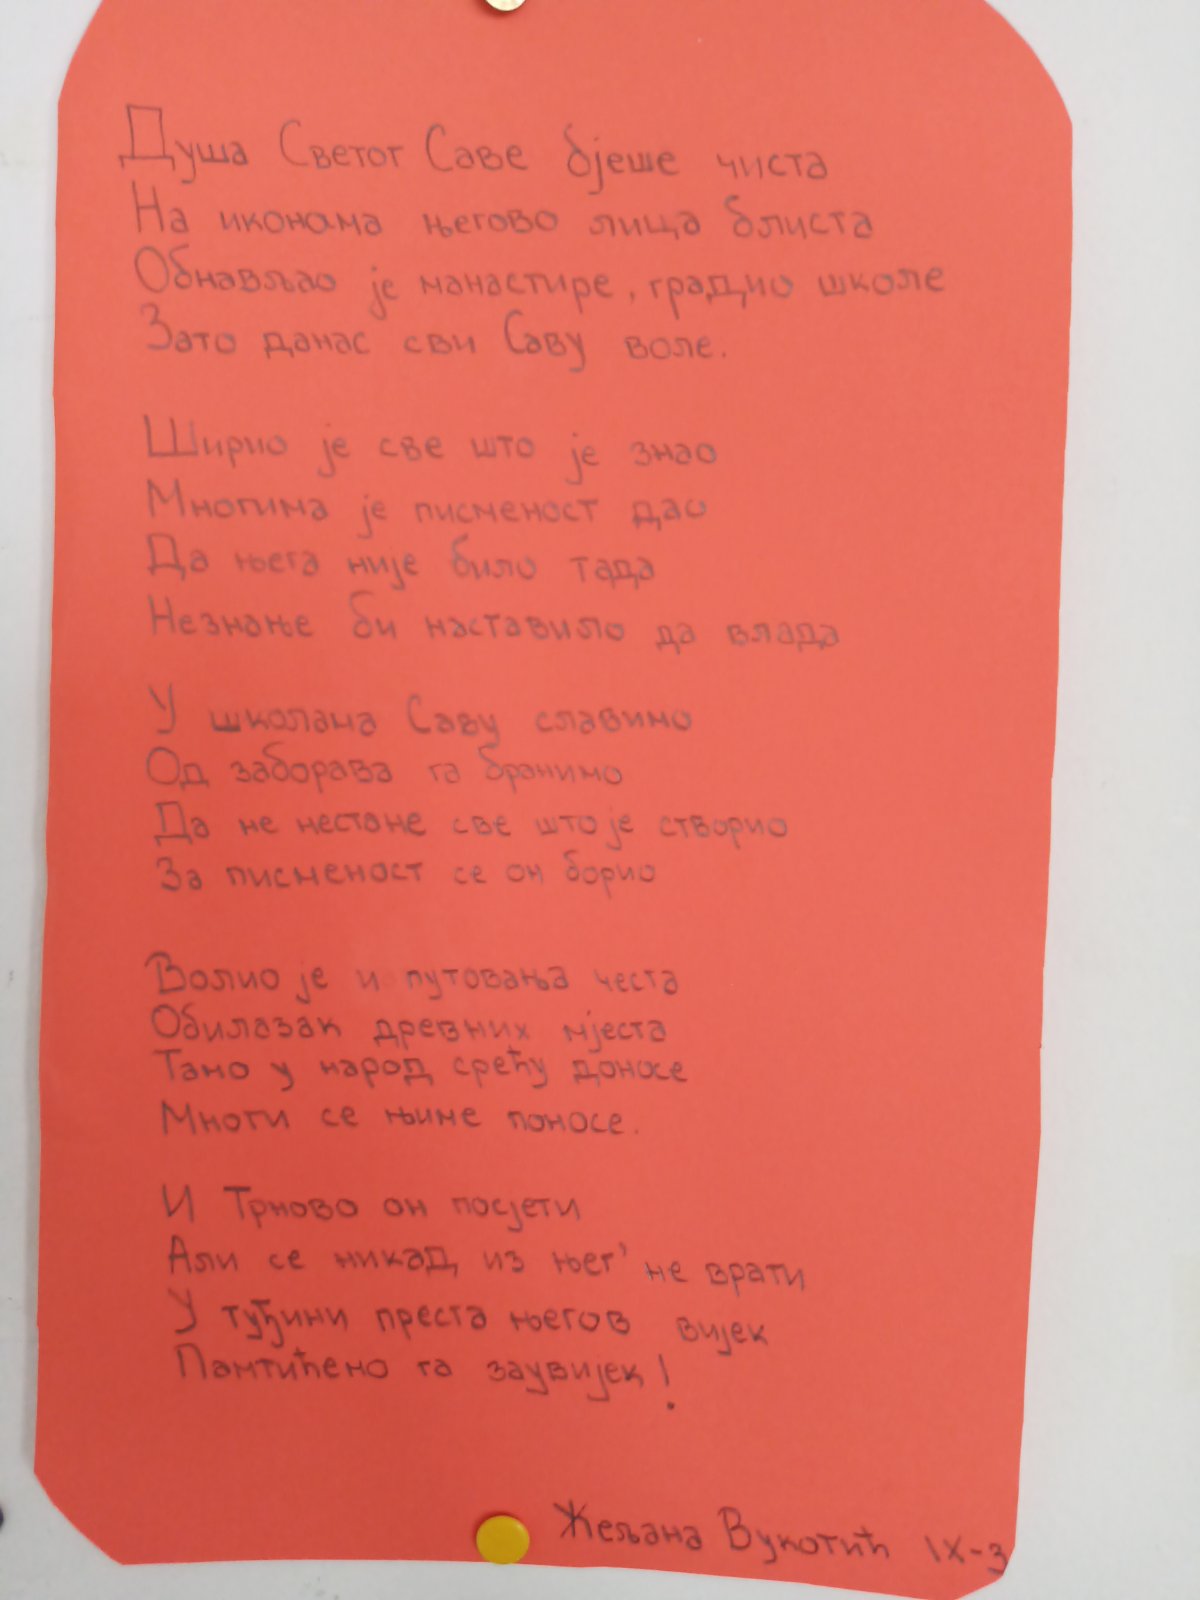 Душа Светог Саве бјеше чиста
На иконама његово лица блиста
Обнављао је манастире, градио школе
Зато данас сви Саву воле.
Ширио је све што је знао
Многима је писменост дао
Да њега није било тада
Незнање би наставило да влада
У школама Саву славимо
Од заборава га бранимо
Да не нестане све што је створио
За писменост се он борио
Волио је и путовања честа
Обилазак древних мјеста
Тамо у народ срећу доносе
Многи се њиме поносе.
И Трново он посјети
Али се никад из њег' не врати
У туђини преста његов вијек
Памтићемо га заувијек!
Жељана Вукотић IX-3